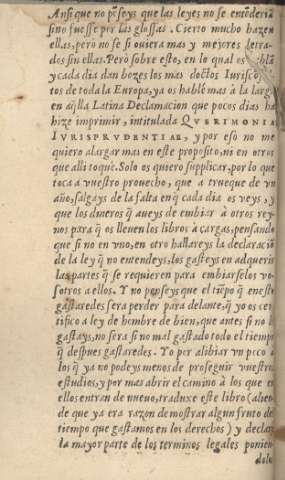 Ansi que no pẽseys que las leyes no se entẽderiã
sino fuesse por las glossas. Cierto mucho hazen
ellas, però no se si ouiera mas y mejores letra-
dos sin ellas. Però sobre esto, en lo qual os
y cada dia dan bozes los mas doctos Iurisco
tos de toda la Europa, ya os hablé mas à la larg
en aq̃lla Latina Declamacion que pocos dias ha
hize imprimir, intitulada QVERIMONIA
IVRISPRVDENTIAE, y por esso no me
quiero alargar mas en este proposito, ni en otros
que alli toqué. Solo os quiero supplicar, por lo que
toca à vuestro prouecho, que à trueque de vn
año, salgays de la falta en q̃ cada dia os veys, y
que los dineros q̃ aueys de embiar à otros rey-
nos para q̃ os lleuen los libros à cargas, pensando
que si no en vno, en otro hallareys la declaraciõ
de la ley q̃ no entendeys, los gasteys en adquerir
las partes q̃ se requieren para embiarselos vo-
sotros a ellos. Y no pẽseys que el tiẽpo q̃ eneste
gastaredes sera perder para delante, q̃ yo os cer
tifico a ley de hombre de bien, que antes si no l
gastays, no sera si no mal gastado todo el tiempo
q̃ despues gastaredes. Yo por alibiar vn poco à
los q̃ ya no podeys menos de proseguir vuestros
estudios, y por mas abrir el camino à los que en
ellos entran de nueuo, traduxe este libro (allen-
de que ya era razon de mostrar algun fruto del
tiempo que gastamos en los derechos) y declarè
la mayor parte de los terminos legales ponien-
dole